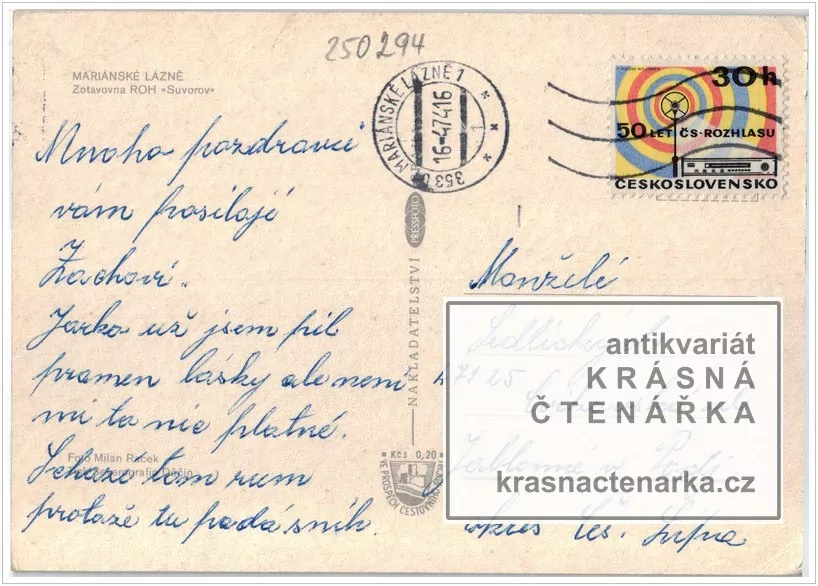 250294
MARIÁNSKÉ LÁZNĚ
Zotavovna ROH »Suvorov«
MARIÁNSKÉ LÁZNĚ 1
16.-4.74 16
353 0
30 h
50 LET ČS. ROZHLASU
ČESKOSLOVENSKO
Mnoho pozdravů
vám posílají
Zachovi.
Jarko už jsem pil
pramen lásky ale není
mi to nic platné.
Schází tam rum
protože tu padá sníh.
Foto Milan Raček
NAKLADATELSTVÍ PRESSFOTO
Kčs 0,20
VE PROSPĚCH CESTOVNÍHO
Manželé
Sedlický
471 25
Jablonné v Podj.
okres Čes. Lípa
antikvariát
KRÁSNÁ
ČTENÁŘKA
krasnactenarka.cz